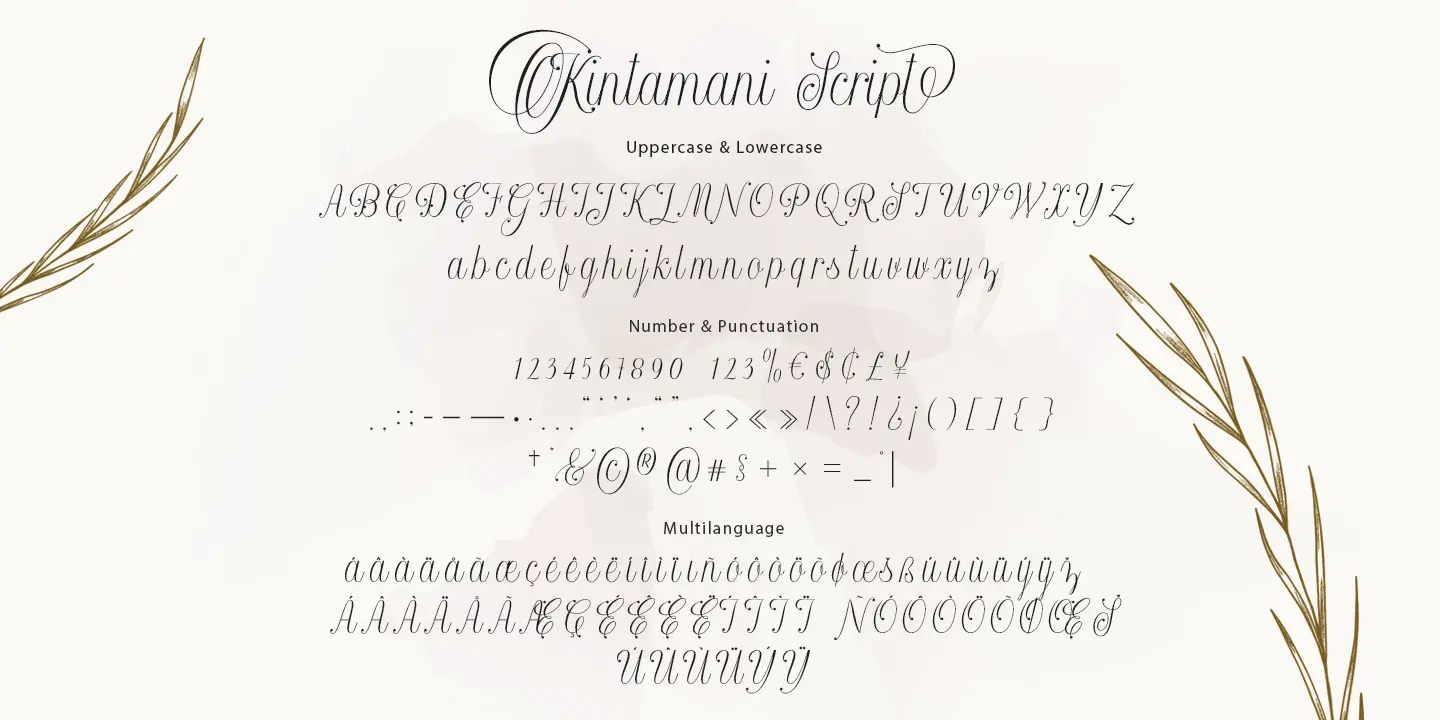 Kintamani Script
Uppercase & Lowercase
ABCDEFGHIJKLMNOPQRSTUVWXYZ
abcdefghijklmnopqrstuvwxyz
Number & Punctuation
1234567890 123%€$₵£¥
.,:;-–—•·...¨‘’‚“”„<>«»/\?!¿¡()[]{}
†*&©®@#§+×=_°|
Multilanguage
áâàäåãæçéêèëíîìïıñóôòöõøœšßúûùüýÿž
ÁÂÀÄÅÃÆÇÉÊÈËÍÎÌÏ ÑÓÔÒÖÕØŒŠ
ÚÛÙÜÝŸ